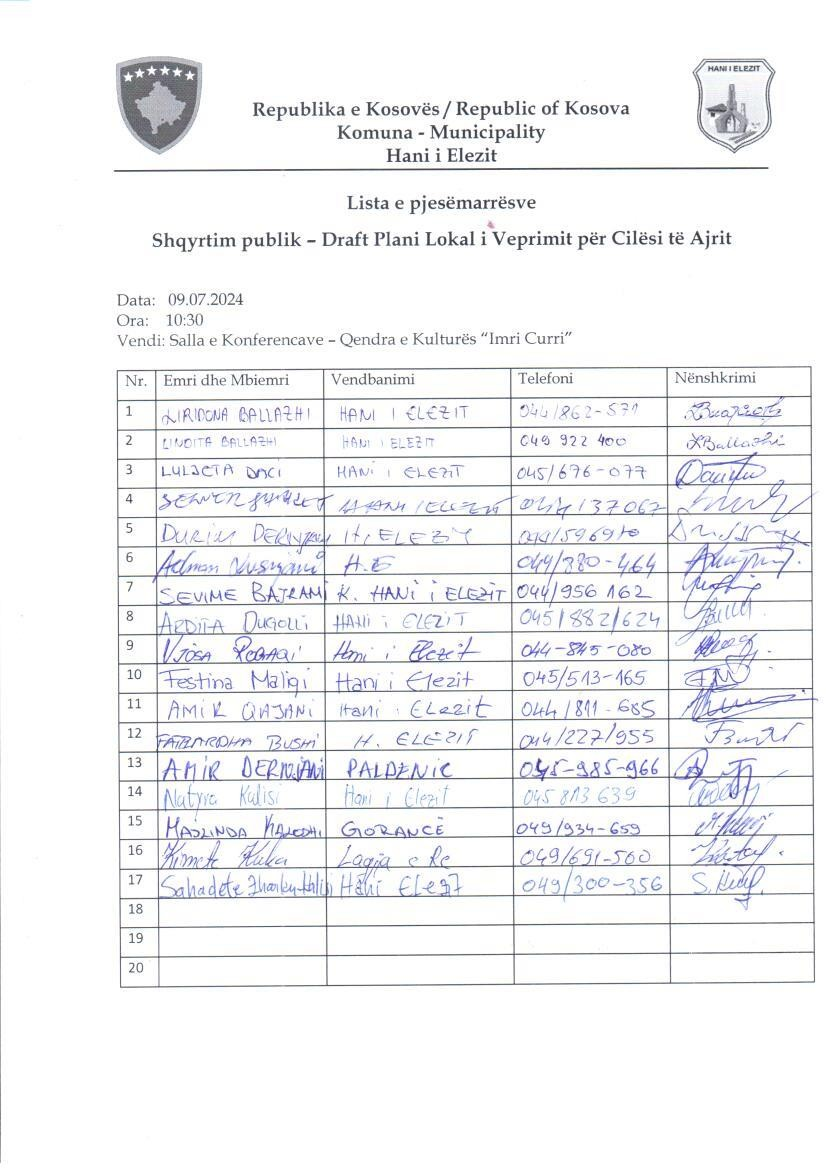 HANI I ELEZIT
Republika e Kosovës / Republic of Kosova
Komuna - Municipality
Hani i Elezit
Lista e pjesëmarrësve
Shqyrtim publik – Draft Plani Lokal i Veprimit për Cilësi të Ajrit
Data: 09.07.2024
Ora: 10:30
Vendi: Salla e Konferencave – Qendra e Kulturës “Imri Curri”
Nr. Emri dhe Mbiemri Vendbanimi Telefoni Nënshkrimi
1 LIRIDONA BALLAZHI HANI I ELEZIT 044/862-571
2 LINDITA BALLAZHI HANI I ELEZIT 049 922 400 LBallazhi
3 LULJETA DACI HANI I ELEZIT 045/676-077
4 HANI I ELEZIT
5 DURIM H. ELEZIT
6 Adnan H.E 049/380-464
7 SEVIME BAJRAMI K. HANI i ELEZIT 044/956 162
8 ARDITA DUGOLLI HANI i ELEZIT 045/882/624
9 VJOSA Hani i Elezit 044-845-080
10 Festina Maliqi Hani i Elezit 045/513-165
11 AMIR Hani i Elezit 044/811-685
12 FATBARDHA BUSHI H. ELEZIT 044/227/955
13 AMIR DERNJANI PALDENIC 045-985-966
14 Natyra Kalisi Hani i Elezit 045 813 639
15 MAJLINDA GORANCË 049/934-659
16 Kimete Kuka Lagja e Re 049/691-500
17 Sahadete Hani Elezit 049/300-356
18
19
20